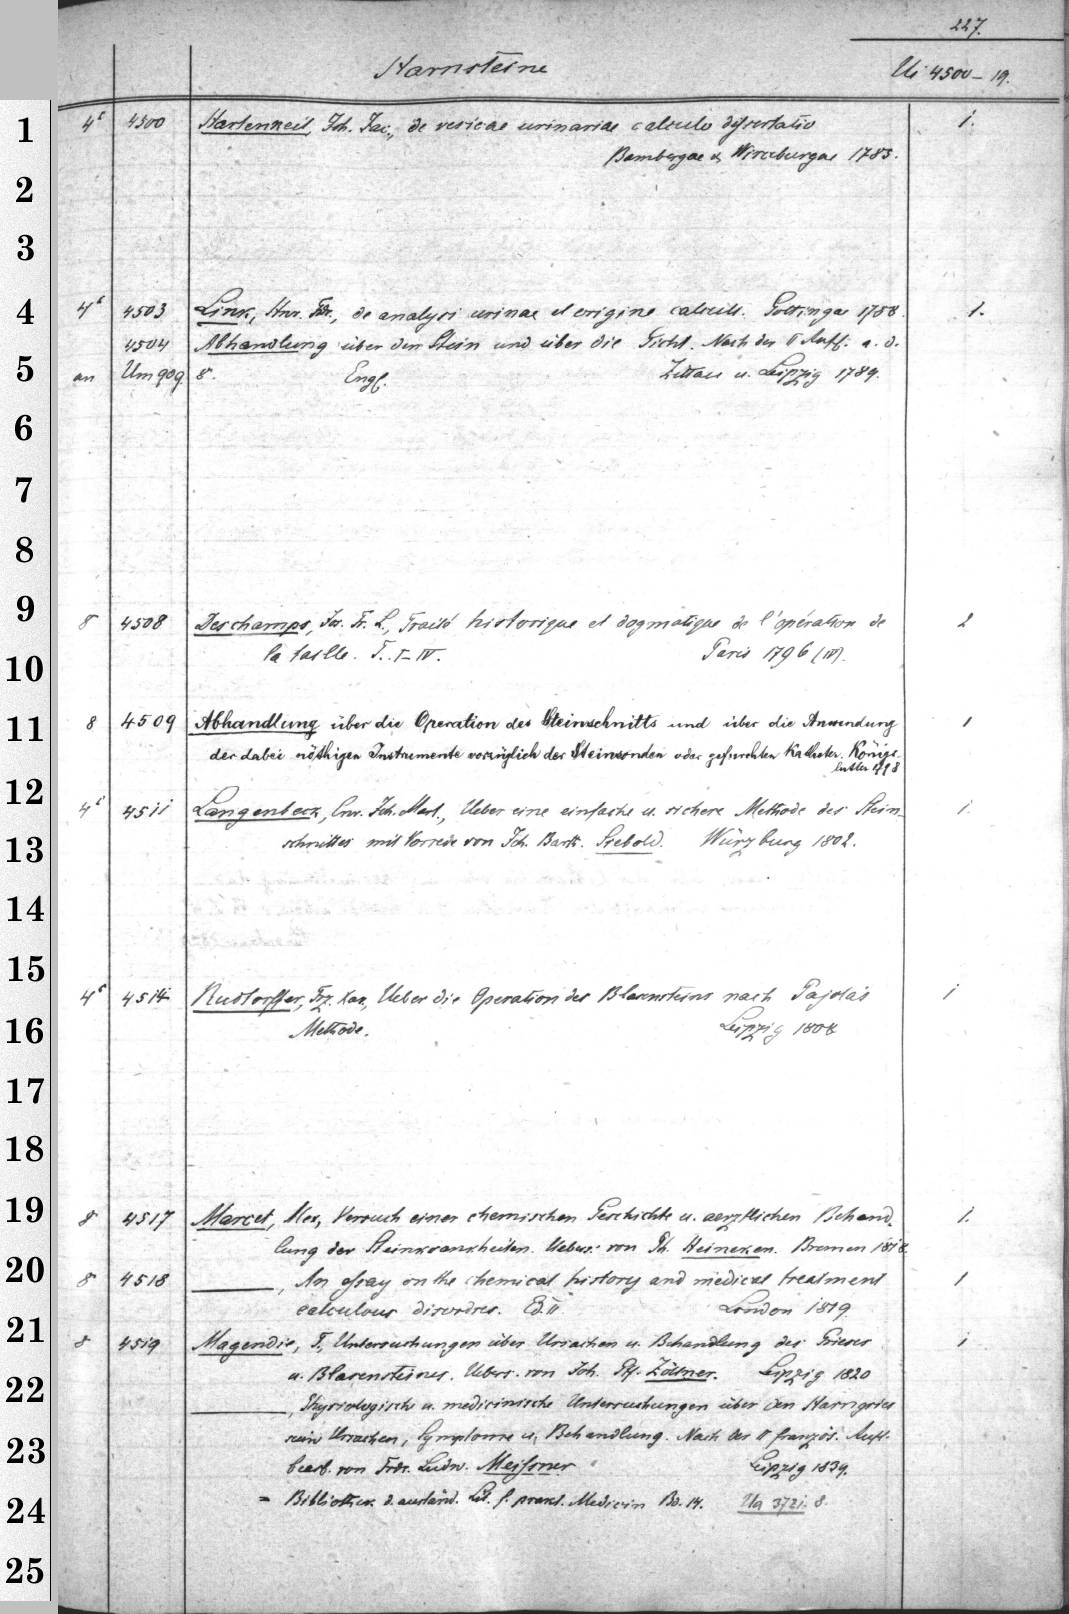 227.
Harnsteine Ui 4500-19.
1 4° 4500 Hartenkeil, Joh. Jac., de vesicae urinariae calculo dissertatio 1.
Bambergae & Wirceburgae 1785.
2
3
4 4° 4503 Link, Hnr. Fdr., de analysi urinae et origine calculi. Gottingae 1788. 1.
4504 Abhandlung über den Stein und über die Gicht. Nach der II Aufl. a. d.
5 an Um 909 8°. Engl. Zittau u. Leipzig 1789.
6
7
8
9 8 4508 Deschamps, Jos. Fr. L., Traité historique et dogmatique de l'opération de 2
10 la taille. T. I-IV. Paris 1796 (IV).
11 8 4509 Abhandlung über die Operation des Steinschnitts und über die Anwendung 1
der dabei nöthigen Instrumente vorzüglich der Steinsonden oder gefurchten Katheter. Königs-
lutter 1798
12 4° 4511 Langenbeck, Cnr. Joh. Mart., Ueber eine einfache u. sichere Methode des Stein- 1.
13 schnittes mit Vorrede von Joh. Barth. Siebold. Würzburg 1802.
14
15 4° 4514 Rudtorffer, Frz. Xav., Ueber die Operation des Blasensteins nach Pajola's 1
16 Methode. Leipzig 1808
17
18
19 8 4517 Marcet, Alex., Versuch einer chemischen Geschichte u. aerztlichen Behand- 1.
lung der Steinkrankheiten. Uebers. von Ph. Heineken. Bremen 1818.
20 8 4518 ———, An essay on the chemical history and medical treatment 1
calculous disordres. Ed. II London 1819
21 8 4519 Magendie, F., Untersuchungen über Ursachen u. Behandlung des Grieses 1
22 u. Blasensteines. Uebers. von Joh. Zöllner. Leipzig 1820
———, Physiologische u. medicinische Untersuchungen über den Harngries
23 sein Ursachen, Symptome u. Behandlung. Nach der II französ. Aufl.
bearb. von Frdr. Ludw. Meißner Leipzig 1839.
24 = Bibliothek d. ausländ. Lit. f. pract. Medicin Bd. 14. Ua 3721. 8.
25